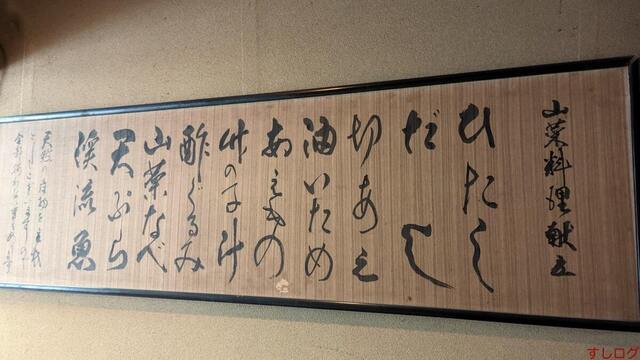 山菜料理献立
ひたし
だし
切あえ
油いため
あえもの
竹の子汁
酢ぐるみ
山菜なべ
天ぷら
溪流魚
天然の産物を
すしログ